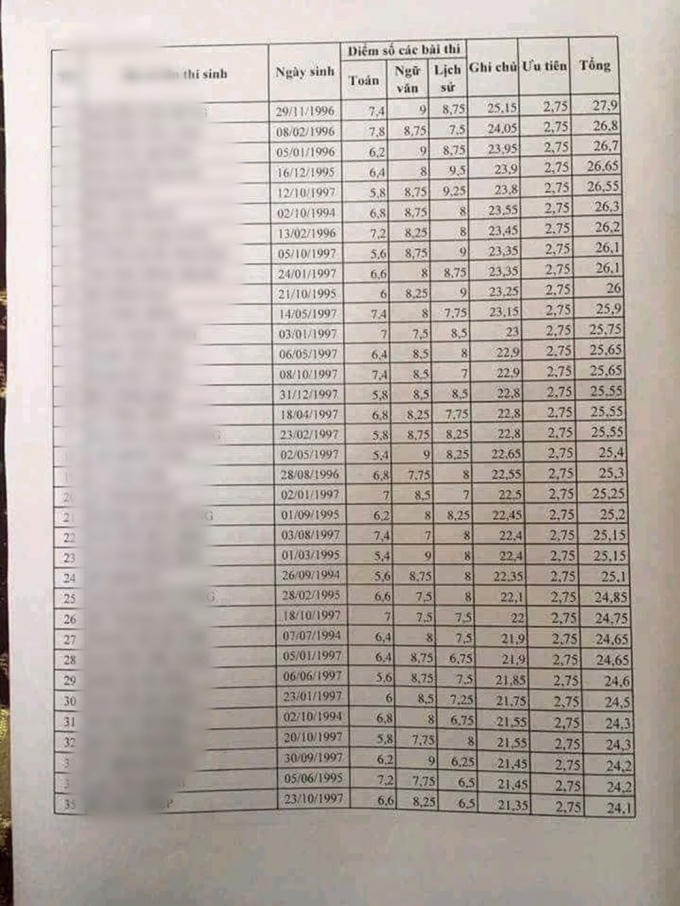 Điểm số các bài thi
thí sinh Ngày sinh Toán Ngữ văn Lịch sử Ghi chú Ưu tiên Tổng
29/11/1996 7,4 9 8,75 25,15 2,75 27,9
08/02/1996 7,8 8,75 7,5 24,05 2,75 26,8
05/01/1996 6,2 9 8,75 23,95 2,75 26,7
16/12/1995 6,4 8 9,5 23,9 2,75 26,65
12/10/1997 5,8 8,75 9,25 23,8 2,75 26,55
02/10/1994 6,8 8,75 8 23,55 2,75 26,3
13/02/1996 7,2 8,25 8 23,45 2,75 26,2
05/10/1997 5,6 8,75 9 23,35 2,75 26,1
24/01/1997 6,6 8 8,75 23,35 2,75 26,1
21/10/1995 6 8,25 9 23,25 2,75 26
14/05/1997 7,4 8 7,75 23,15 2,75 25,9
03/01/1997 7 7,5 8,5 23 2,75 25,75
06/05/1997 6,4 8,5 8 22,9 2,75 25,65
08/10/1997 7,4 8,5 7 22,9 2,75 25,65
31/12/1997 5,8 8,5 8,5 22,8 2,75 25,55
18/04/1997 6,8 8,25 7,75 22,8 2,75 25,55
23/02/1997 5,8 8,75 8,25 22,8 2,75 25,55
02/05/1997 5,4 9 8,25 22,65 2,75 25,4
28/08/1996 6,8 7,75 8 22,55 2,75 25,3
20 02/01/1997 7 8,5 7 22,5 2,75 25,25
21 G 01/09/1995 6,2 8 8,25 22,45 2,75 25,2
22 03/08/1997 7,4 7 8 22,4 2,75 25,15
23 01/03/1995 5,4 9 8 22,4 2,75 25,15
24 26/09/1994 5,6 8,75 8 22,35 2,75 25,1
25 G 28/02/1995 6,6 7,5 8 22,1 2,75 24,85
26 18/10/1997 7 7,5 7,5 22 2,75 24,75
27 07/07/1994 6,4 8 7,5 21,9 2,75 24,65
28 05/01/1997 6,4 8,75 6,75 21,9 2,75 24,65
29 06/06/1997 5,6 8,75 7,5 21,85 2,75 24,6
30 23/01/1997 6 8,5 7,25 21,75 2,75 24,5
31 02/10/1994 6,8 8 6,75 21,55 2,75 24,3
32 20/10/1997 5,8 7,75 8 21,55 2,75 24,3
3 30/09/1997 6,2 9 6,25 21,45 2,75 24,2
3 05/06/1995 7,2 7,75 6,5 21,45 2,75 24,2
35 P 23/10/1997 6,6 8,25 6,5 21,35 2,75 24,1